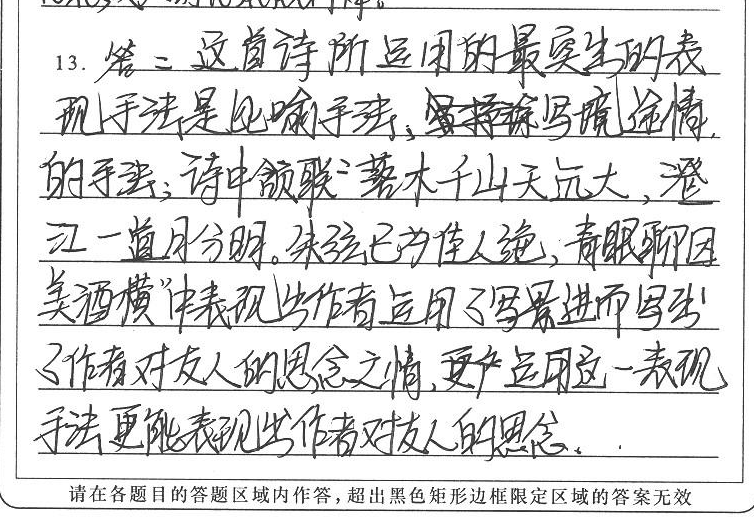 13. 答：这首诗所运用的最突出的表
现手法是比喻手法，写境途情，
的手法；诗中颔联“落木千山天远大，澄
江一道月分明。朱弦已为佳人绝，青眼聊因
美酒横”中表现出作者运用了写景进而写出
了作者对友人的思念之情，运用这一表现
手法更能表现出作者对友人的思念。
请在各题目的答题区域内作答，超出黑色矩形边框限定区域的答案无效